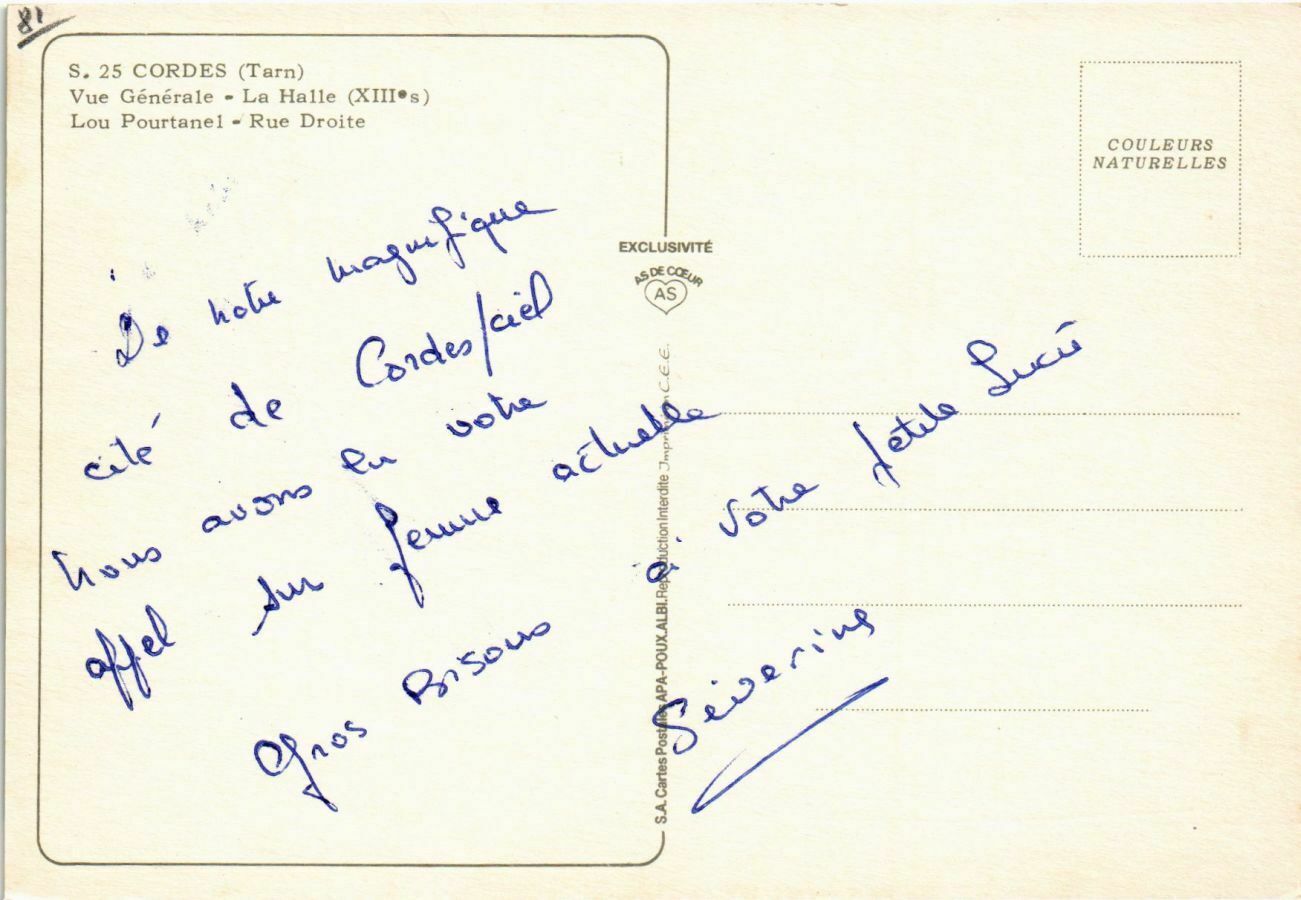 81
S. 25 CORDES (Tarn)
Vue Générale - La Halle (XIIIes)
Lou Pourtanel - Rue Droite
COULEURS
NATURELLES
EXCLUSIVITÉ
AS DE CŒUR
AS
De notre magnifique
cité de Cordes/ciel
nous avons lu votre
appel sur femme actuelle
Gros Bisous à votre petite Lucie
Séverine
S.A. Cartes Postales APA-POUX.ALBI. Reproduction Interdite Imprimé en C.E.E.